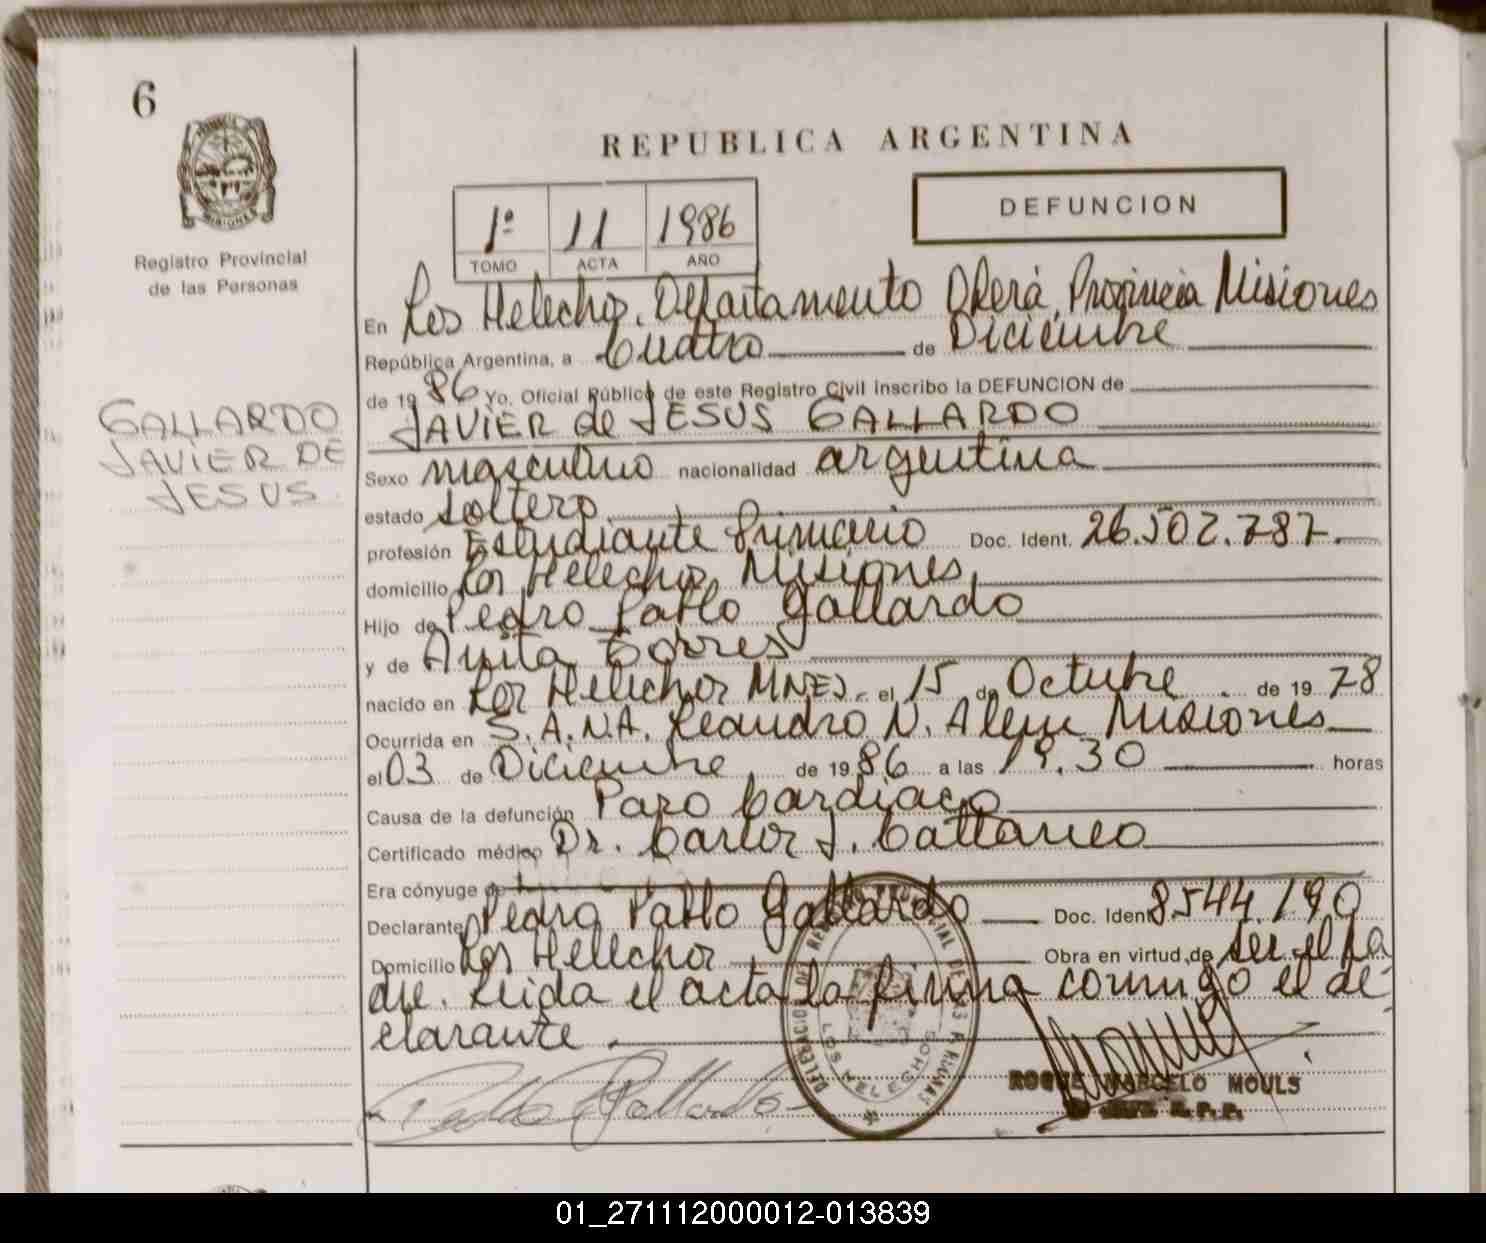 6
MISIONES
Registro Provincial
de las Personas
GALLARDO
JAVIER DE
JESUS
REPUBLICA ARGENTINA
1º 11 1986
TOMO ACTA AÑO
DEFUNCION
En Los Helechos, Departamento Oberá, Provincia Misiones
República Argentina, a Cuatro de Diciembre
de 19 86 Yo, Oficial Público de este Registro Civil inscribo la DEFUNCION de
JAVIER de JESUS GALLARDO
Sexo masculino nacionalidad argentina
estado soltero
profesión Estudiante Primario Doc. Ident. 26.502.787.
domicilio Los Helechos, Misiones,
Hijo de Pedro Pablo Gallardo
y de Anita Torres
nacido en Los Helechos MNES. el 15 de Octubre de 19 78
Ocurrida en S.A.N.A. Leandro N. Alem Misiones
el 03 de Diciembre de 19 86 a las 19.30 horas
Causa de la defunción Paro Cardiaco
Certificado médico Dr. Carlos J. Cattaneo
Era cónyuge de
Declarante Pedro Pablo Gallardo Doc. Ident 8544190
Domicilio Los Helechos Obra en virtud de ser el pa
dre. Leida el acta la firma conmigo el de-
clarante.
DELEGACION DEL REGISTRO PROVINCIAL DE LAS PERSONAS
LOS HELECHOS
Pablo Gallardo
ROQUE MARCELO MOULS
R.P.P.
01_271112000012-013839